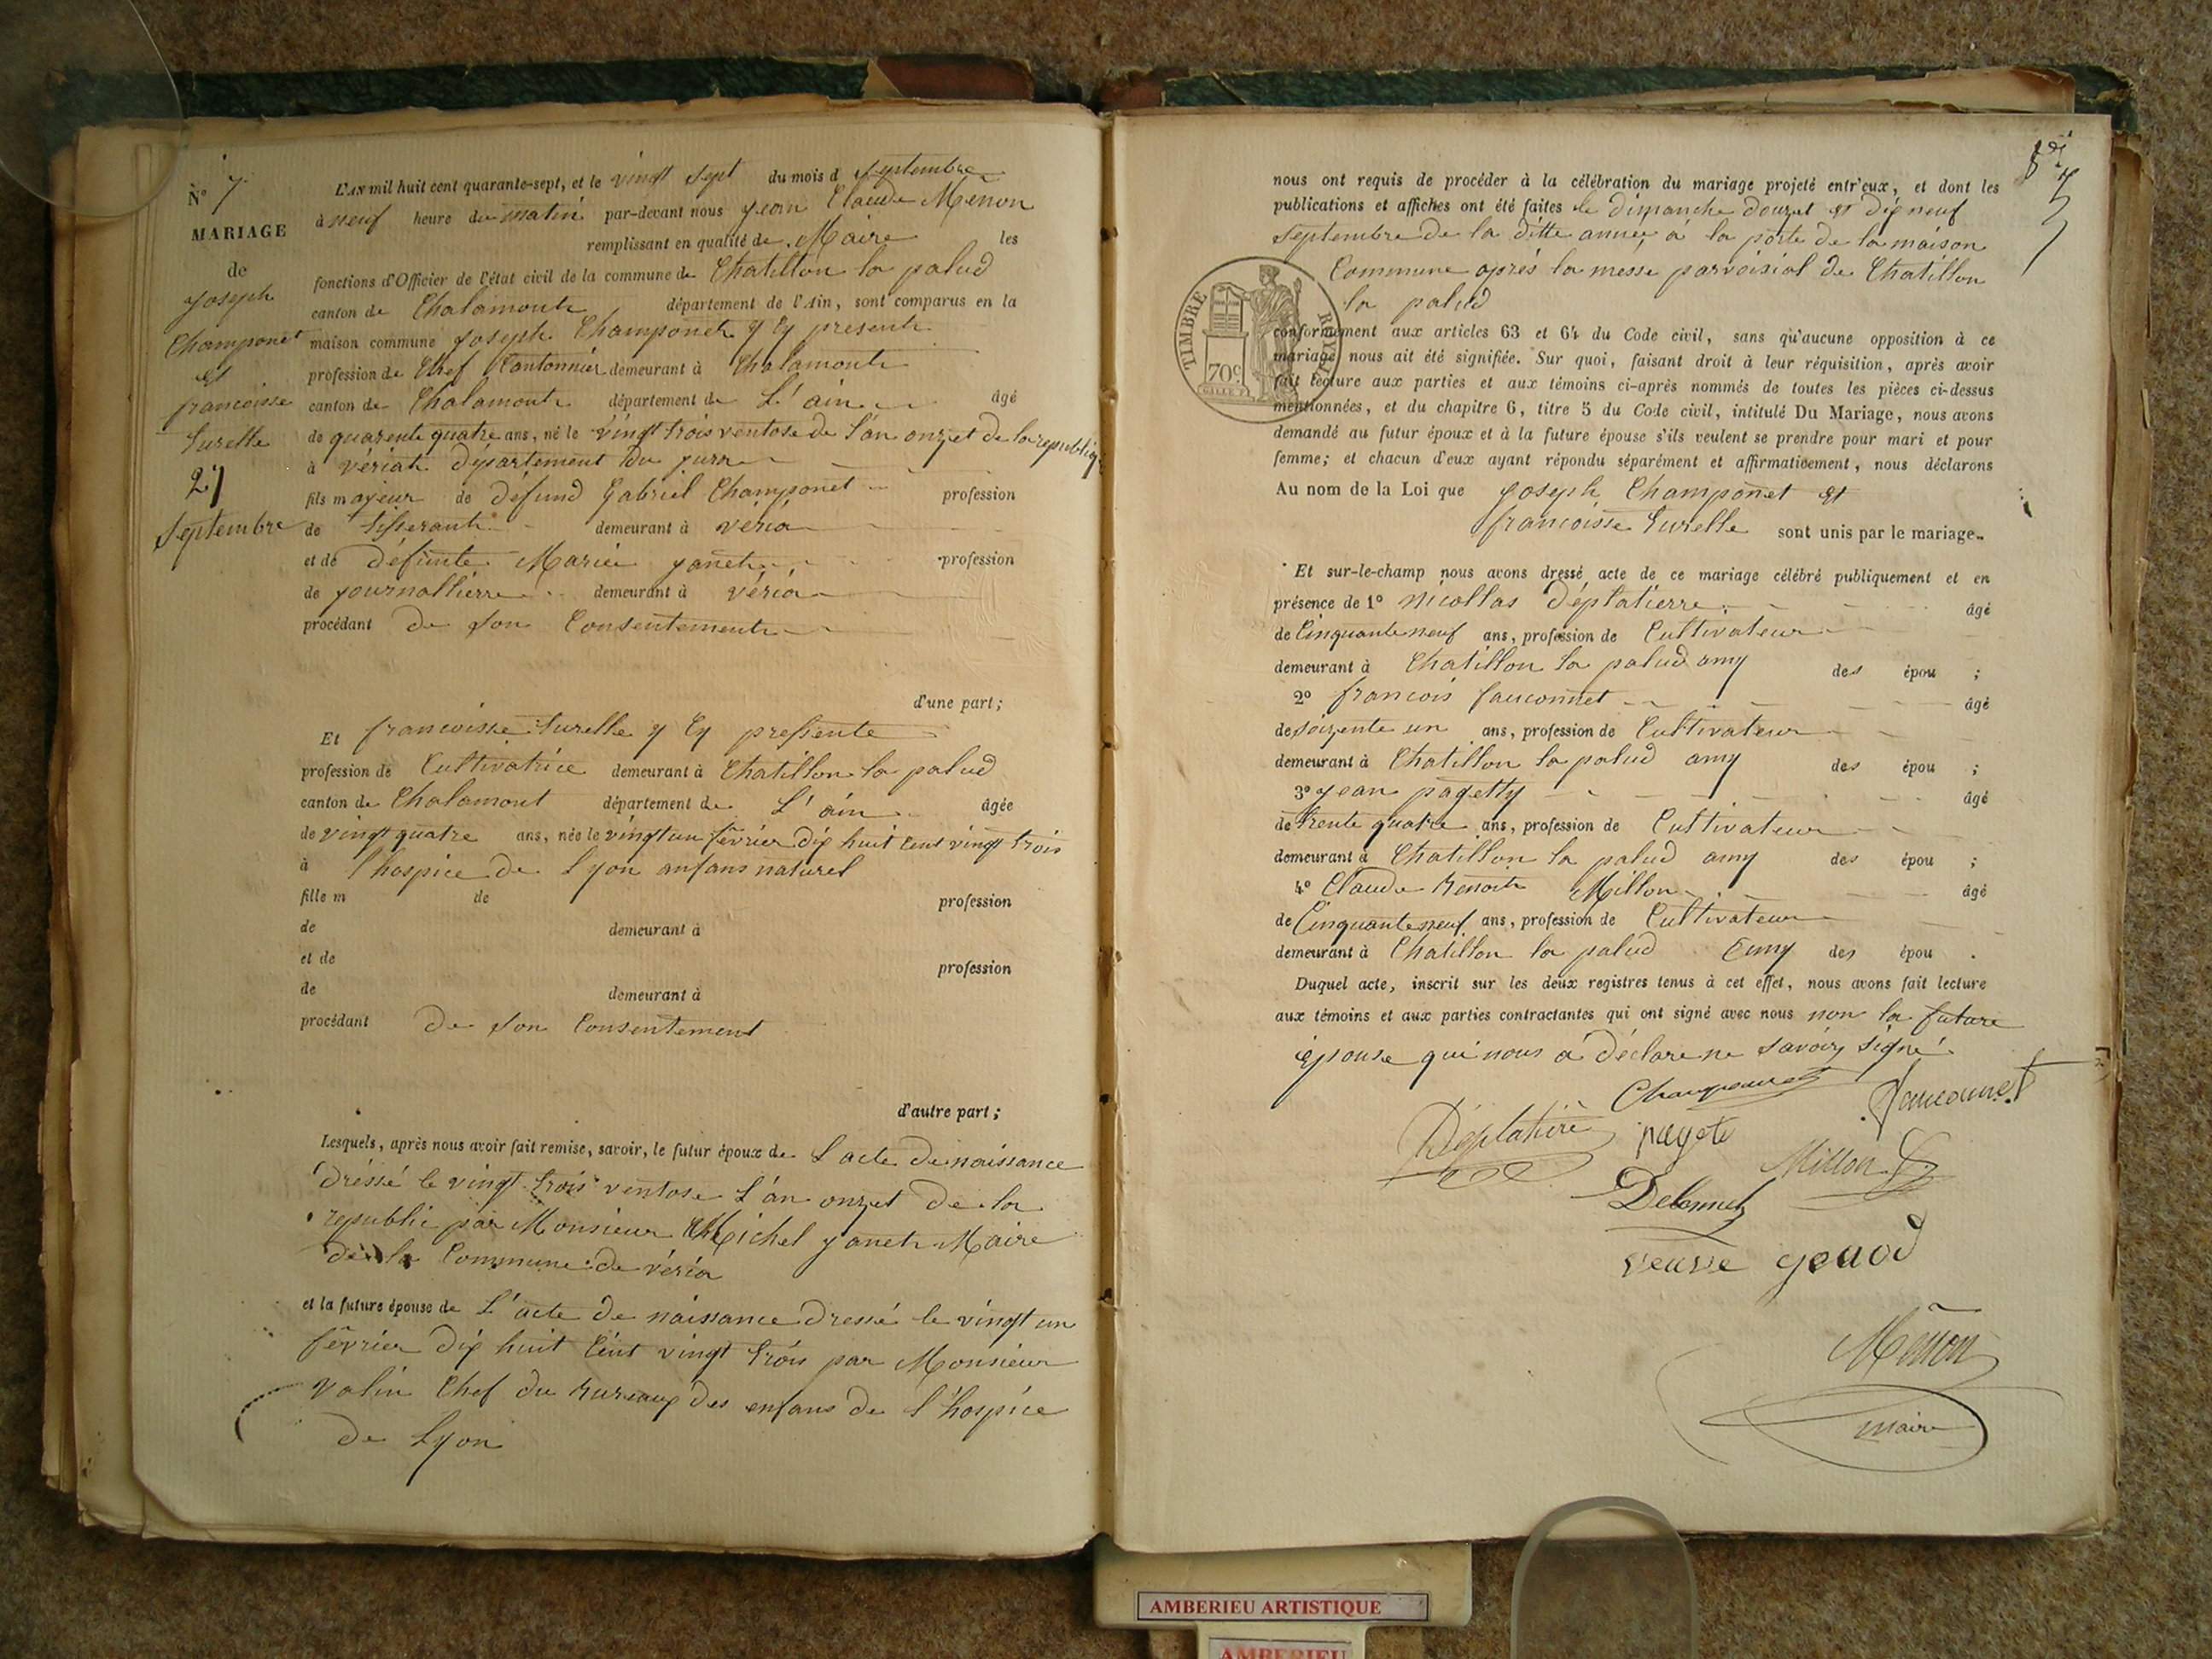 N° 7
MARIAGE
de
joseph
Champonet
et
francoisse
Surelle
27
septembre
L'AN mil huit cent quarante-sept, et le vingt sept du mois d septembre
à neuf heure du matin par-devant nous jean Claude Menon
remplissant en qualité de Maire les
fonctions d'Officier de l'état civil de la commune de Chatillon la palud
canton de Chalamont département de l'Ain, sont comparus en la
maison commune joseph Champonet y Cy présent
profession de Chef Cantonnier demeurant à Chalamont
canton de Chalamont département de L'ain âgé
de quarente quatre ans, né le vingt trois ventose de l'an onzet de la republiq
à vériat département du jura
fils majeur de défund Gabriel Champonet profession
de tisserant demeurant à véria
et de défunte Marie janet profession
de journallierre demeurant à véria
procédant de son Consentement
d'une part;
Et francoisse Surelle y Cy pressente
profession de Cultivatrice demeurant à Chatillon la palud
canton de Chalamont département de L'ain âgée
de vingt quatre ans, née le vingt un février dix huit Cent vingt trois
à l'hospice de Lyon anfans naturel
fille m de profession
de demeurant à
et de profession
de demeurant à
procédant de son Consentement
d'autre part;
Lesquels, après nous avoir fait remise, savoir, le futur époux de L'acte de naissance
dréssé le vingt trois ventose L'an onzet de la
republic par Monsieur Michel janet Maire
de la Commune de véria
et la future épouse de L'acte de naissance dressé le vingt un
février dix huit Cent vingt trois par Monsieur
valin Chef du bureaux des enfans de l'hospice
de Lyon
nous ont requis de procéder à la célébration du mariage projeté entr'eux, et dont les
publications et affiches ont été faites le dimanche douzet et dix neuf
septembre de la ditte année à la porte de la maison
Commune après la messe parroisial de Chatillon
la palud
TIMBRE ROYAL
70c
conformément aux articles 63 et 64 du Code civil, sans qu'aucune opposition à ce
mariage nous ait été signifiée. Sur quoi, faisant droit à leur réquisition, après avoir
fait lecture aux parties et aux témoins ci-après nommés de toutes les pièces ci-dessus
mentionnées, et du chapitre 6, titre 5 du Code civil, intitulé Du Mariage, nous avons
demandé au futur époux et à la future épouse s'ils veulent se prendre pour mari et pour
femme; et chacun d'eux ayant répondu séparément et affirmativement, nous déclarons
Au nom de la Loi que joseph Champonet et
francoisse Surelle sont unis par le mariage.
Et sur-le-champ nous avons dressé acte de ce mariage célébré publiquement et en
présence de 1° nicollas déplatierre âgé
de Cinquante neuf ans, profession de Cultivateur
demeurant à Chatillon la palud amy des épou ;
2° francois fauconnet âgé
de soixente un ans, profession de Cultivateur
demeurant à Chatillon la palud amy des épou ;
3° jean pagetty âgé
de trente quatre ans, profession de Cultivateur
demeurant à Chatillon la palud amy des épou ;
4° Claude benoit Millon âgé
de Cinquante neuf ans, profession de Cultivateur
demeurant à Chatillon la palud amy des épou .
Duquel acte, inscrit sur les deux registres tenus à cet effet, nous avons fait lecture
aux témoins et aux parties contractantes qui ont signé avec nous non la future
épouse qui nous a déclare ne savoir signé
Champonet fauconnet
Déplatière payet Millon
Delornnet
veuve gouod
Menon
maire
AMBERIEU ARTISTIQUE
AMBERIEU